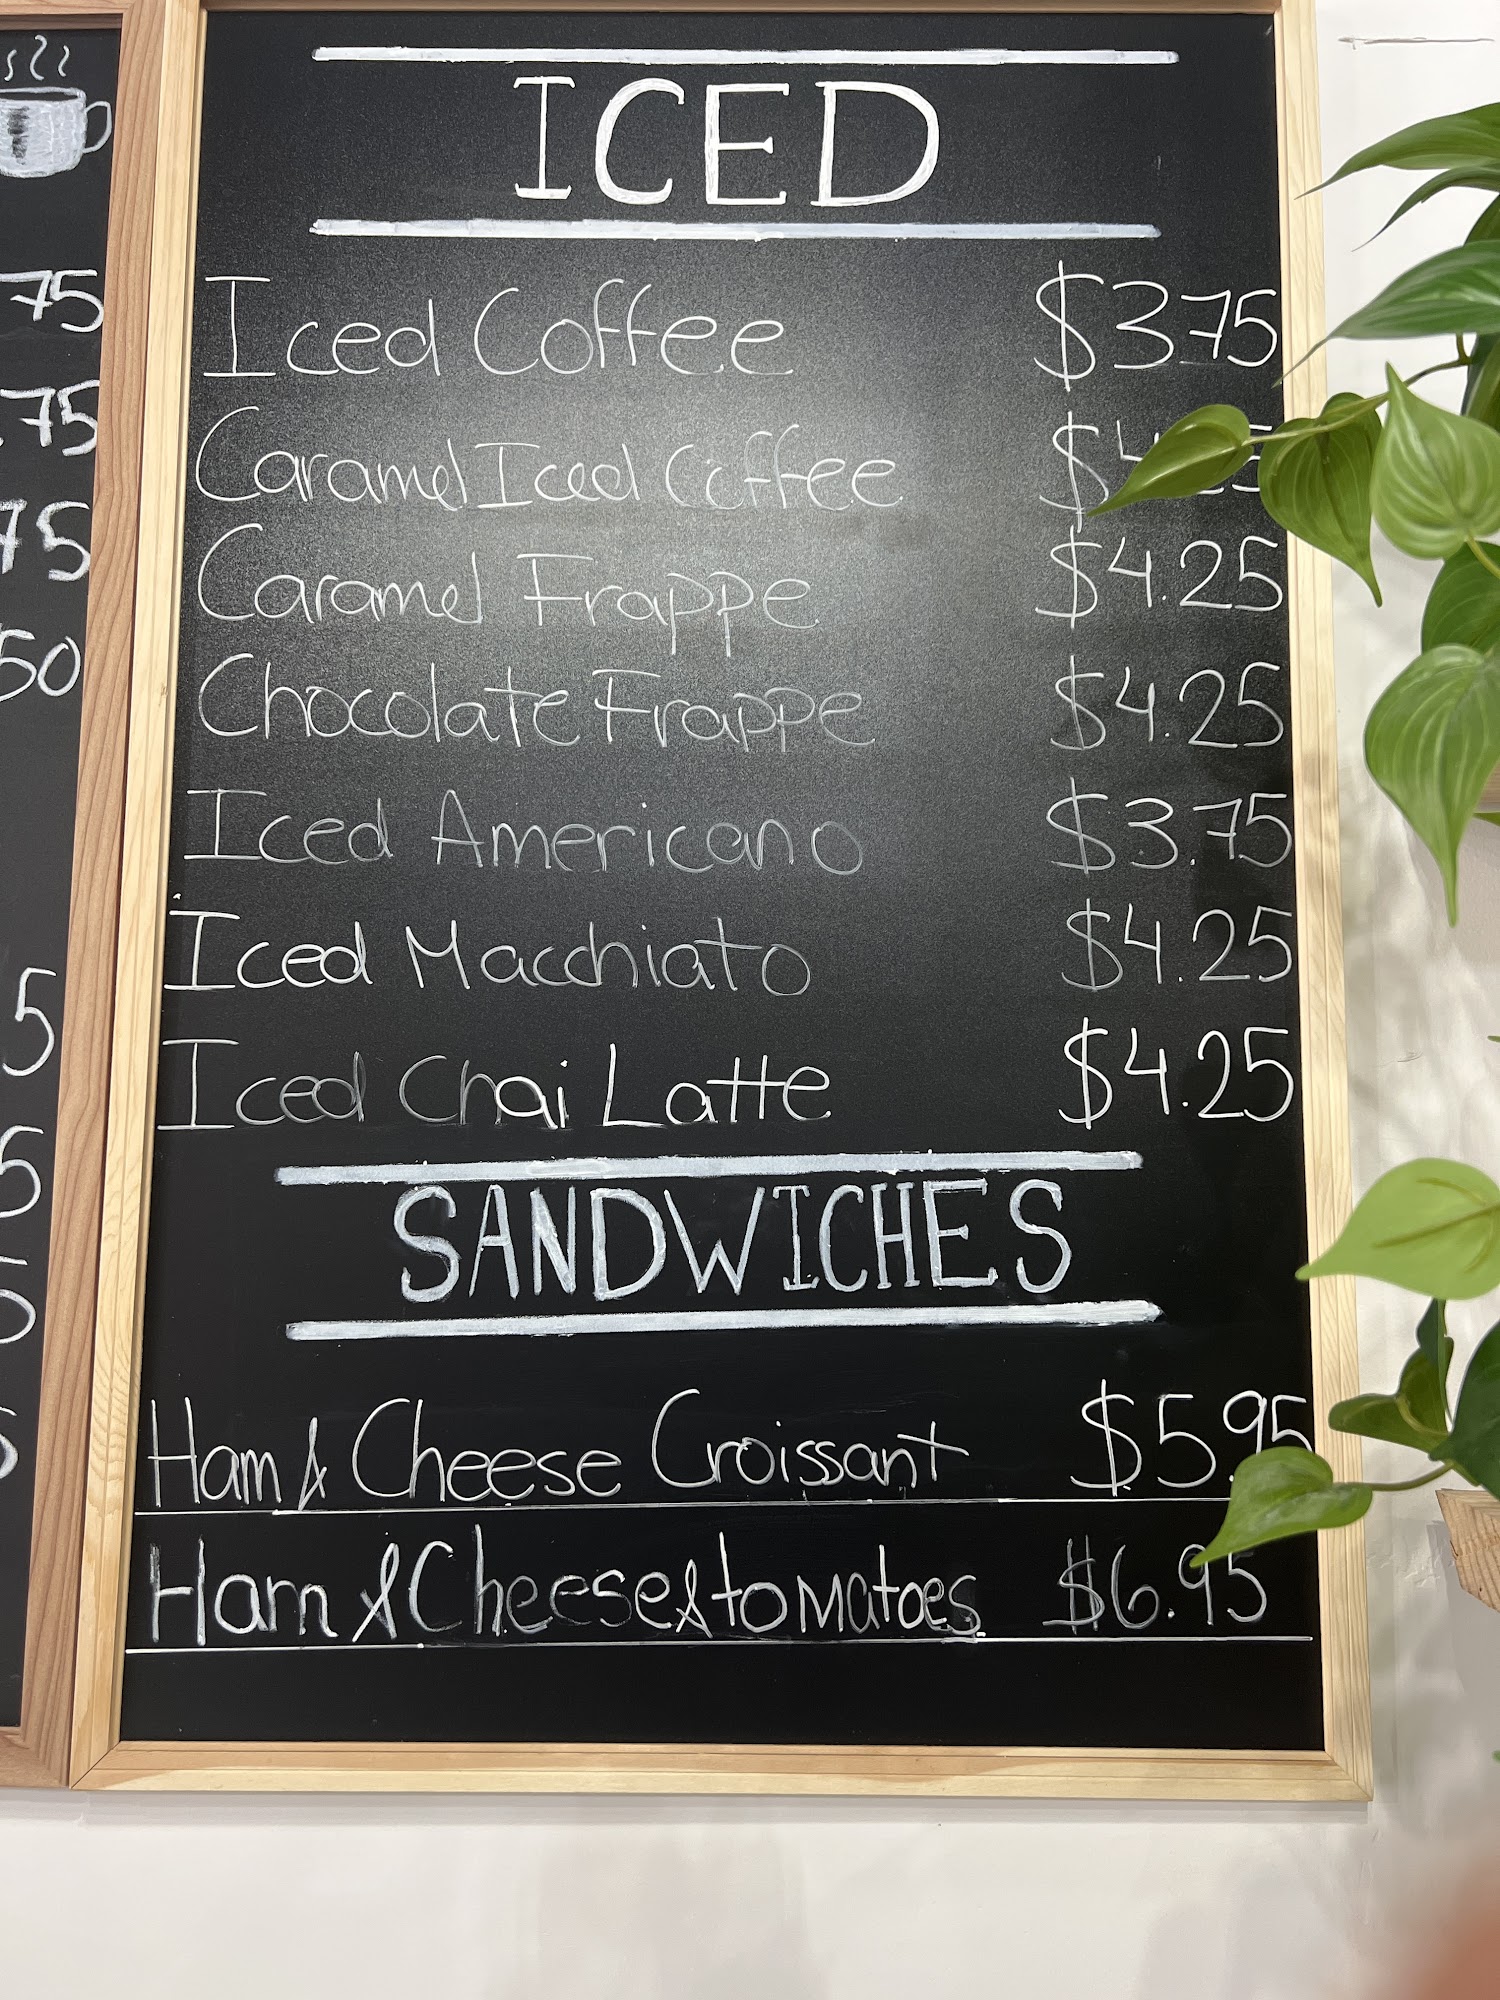 ICED
Iced Coffee $3.75
Caramel Iced Coffee
Caramel Frappe $4.25
Chocolate Frappe $4.25
Iced Americano $3.75
Iced Macchiato $4.25
Iced Chai Latte $4.25
SANDWICHES
Ham & Cheese Croissant $5.95
Ham & Cheese & tomatoes $6.95
75
.75
75
50
5
5
5